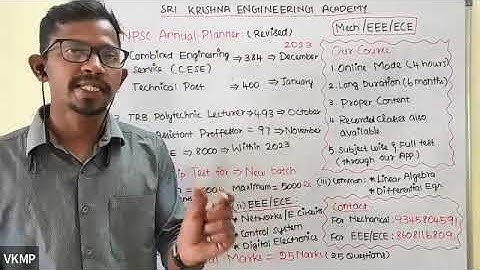 SRI KRISHNA ENGINEERING ACADEMY
NPSC Annual Planner: (Revised)
Mech/EEE/ECE
2023
Combined Engineering ⇒ 384 ⇒ December
Service (CESE)
Technical Post ⇒ 400 ⇒ January
TRB Polytechnic Lecturer ⇒ 493 ⇒ October
Assistant Proffesor = 97 ⇒ November
E ⇒ 8000 ⇒ Within 2023
Our Course
1. Online Mode (4 hours)
2. Long Duration (6 months)
3. Proper Content
4. Recorded Classes also
available
5. Subject wise & Full test
(through our App)
ip Test for ⇒ New batch
Maximum = 5000
(iii) Common: * Linear Algebra
* Differential Eqn
(ii) EEE/ECE:
* Networks/E Circuits
* Control System
* Digital Electronics
Marks = 25 Marks (25 Questions)
Contact
For Mechanical: 9345804591
For EEE/ECE: 8608116809
VKMP